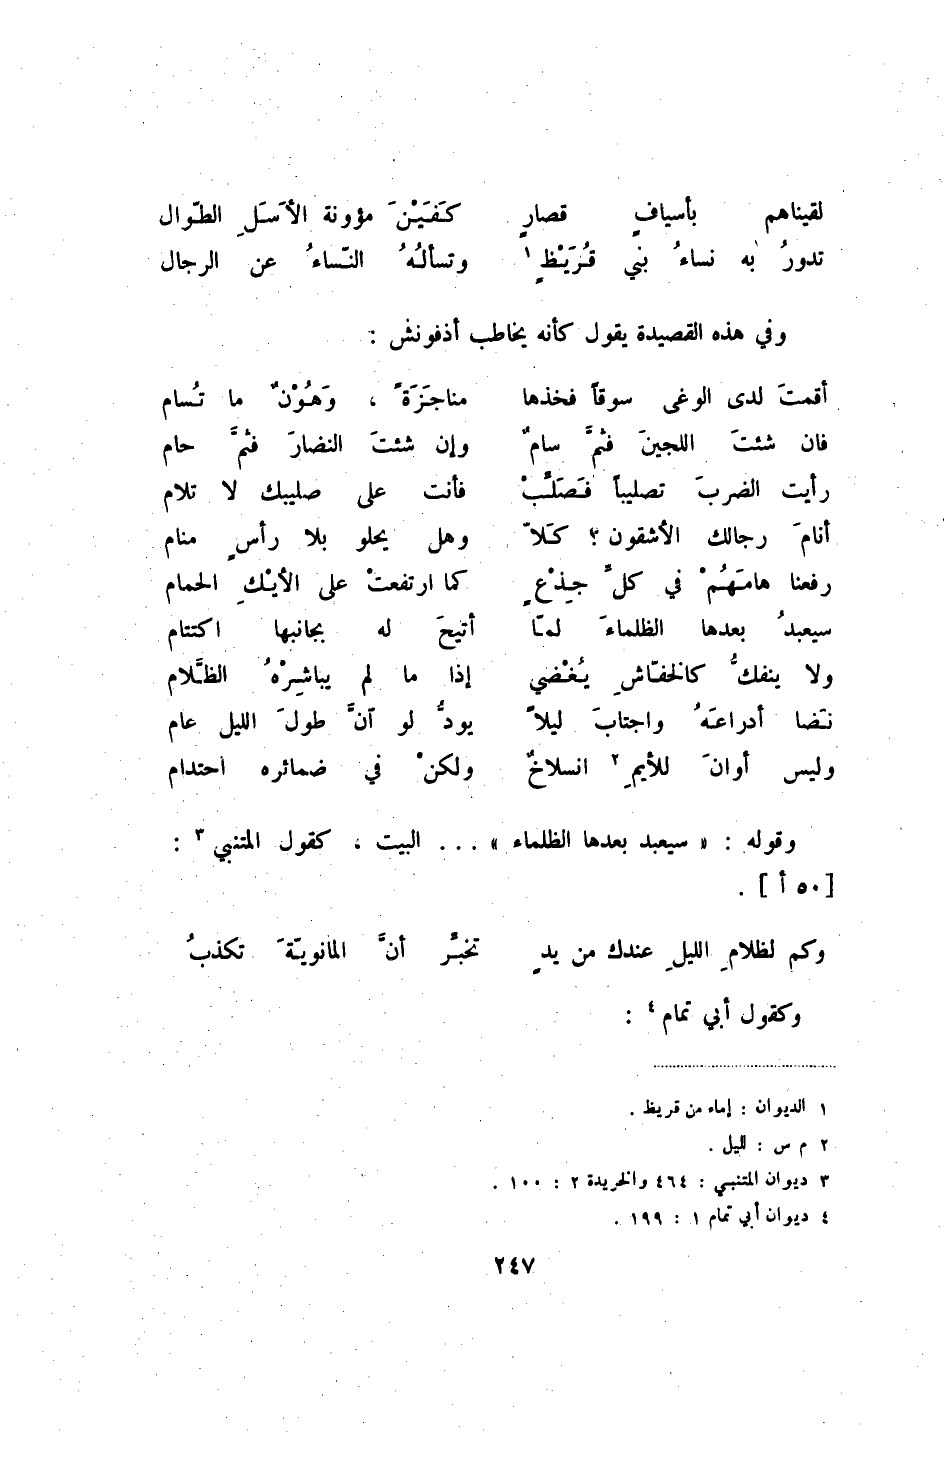 لقيناهم بأسيافٍ قصارٍ كَفَيْنَ مؤونة الأسَلِ الطّوال
تدورُ به نساءُ بني قُرَيْظٍ ١ وتسألُهُ النّساءُ عن الرجال
وفي هذه القصيدة يقول كأنه يخاطب أذفونش :
أقمتَ لدى الوغى سوقاً فخذها مناجَزَةً ، وَهُوْنٌ ما تُسام
فان شئتَ اللجينَ فثمَّ سامٌ وإن شئتَ النضارَ فثمَّ حام
رأيت الضربَ تصليباً فَصَلِّبْ فأنت على صليبك لا تلام
أنامَ رجالك الأشقون ؟ كَلاّ وهل يحلو بلا رأسٍ منام
رفعنا هامَهُمْ في كلِّ جِذْعٍ كما ارتفعتْ على الأيْكِ الحمام
سيعبدُ بعدها الظلماءَ لمّا أتيحَ له بجانبها اكتتام
ولا ينفكُّ كالخفّاشِ يُغْضي إذا ما لم يباشِرْهُ الظَّلام
نَضا أدراعَهُ واجتابَ ليلاً يودُّ لو آنَّ طولَ الليل عام
وليس أوانَ للأيمِ ٢ انسلاخٌ ولكنْ في ضمائره احتدام
وقوله : « سيعبد بعدها الظلماء » ... البيت ، كقول المتنبي ٣ :
[ ٥٠ أ ] .
وكم لظلامِ الليلِ عندك من يدٍ تخبِّر أنَّ المانويّةَ تكذبُ
وكقول أبي تمام ٤ :
١ الديوان : إماء من قريظ .
٢ م س : لليل .
٣ ديوان المتنبي : ٤٦٤ والخريدة ٢ : ١٠٠ .
٤ ديوان أبي تمام ١ : ١٩٩ .
٢٤٧